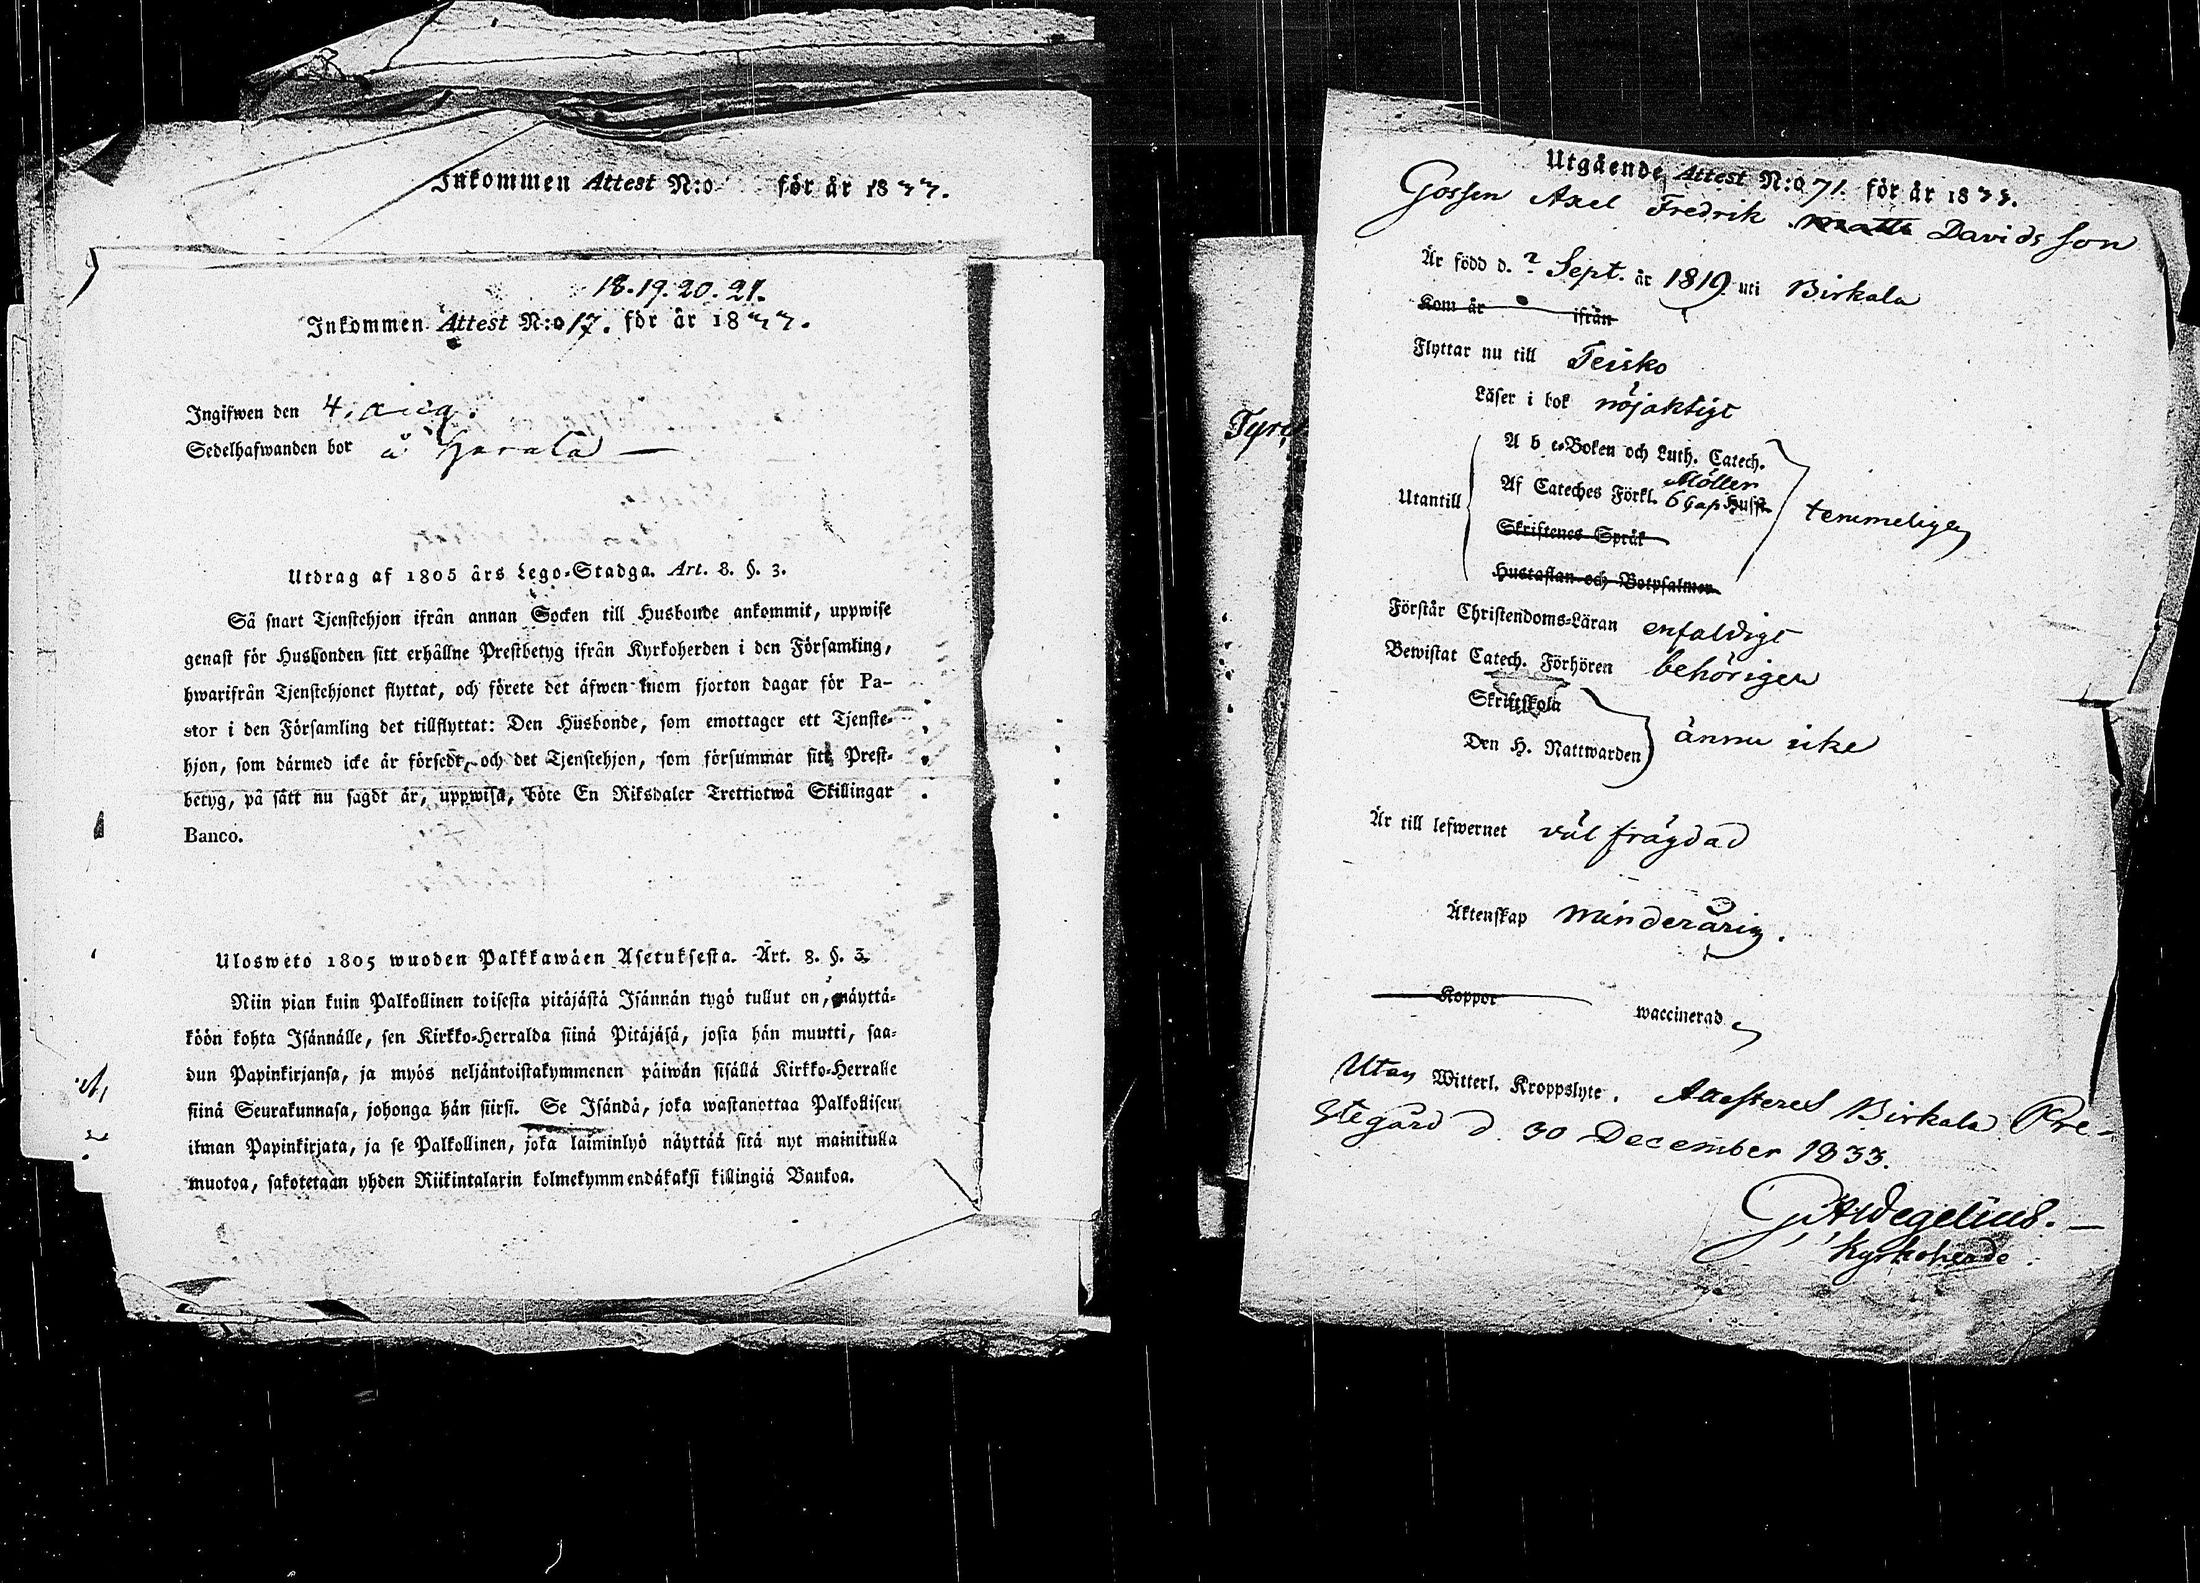 Inkommen Attest N:o för år 1833.
18. 19. 20. 21.
Inkommen Attest N:o 17. för år 1833.
Ingifwen den 4. Aug.
Sedelhafwanden bor å Harala
Utdrag af 1805 års Lego-Stadga. Art. 8. §. 3.
Så snart Tjenstehjon ifrån annan Socken till Husbonde ankommit, uppwise
genast för Husbonden sitt erhållne Prestbetyg ifrån Kyrkoherden i den Församling,
hwarifrån Tjenstehjonet flyttat, och förete det äfwen inom fjorton dagar för Pa-
stor i den Församling det tillflyttat: Den Husbonde, som emottager ett Tjenste-
hjon, som därmed icke är försedt, och det Tjenstehjon, som försummar sitt Prest-
betyg, på sätt nu sagdt är, uppwisa, böte En Riksdaler Trettiotwå Skillingar
Banco.
Ulosweto 1805 wuoden Palkkawäen Asetuksesta. Art. 8. §. 3.
Niin pian kuin Palkollinen toisesta pitäjästä Isännän tygö tullut on, näyttä-
köön kohta Isännälle, sen Kirkko-Herralda siinä Pitäjäsä, josta hän muutti, saa-
dun Papinkirjansa, ja myös neljäntoistakymmenen päiwän sisällä Kirkko-Herralle
siinä Seurakunnasa, johonga hän siirsi. Se Isändä, joka wastanottaa Palkollisen
ilman Papinkirjata, ja se Palkollinen, joka laiminlyö näyttää sitä nyt mainitulla
muotoa, sakotetaan yhden Riikintalarin kolmekymmendäkaksi killingiä Bankoa.
Utgående Attest N:o 71. för år 1833.
Gossen Axel Fredrik Matts Davidsson
Är född d. ? Sept. år 1819 uti Birkala
Kom år ifrån
Flyttar nu till Teisko
Läser i bok nöjaktigt
A b c-Boken och Luth. Catech.
Möller
Utantill Af Cateches Förkl. 6 Cap Husst. temmeligen
Skriftenes Språk
Hustaflan och Botpsalmen
Förstår Christendoms-Läran enfaldigt
Bewistat Catech. Förhören behörigen
Skriftskola
Den H. Nattwarden ännu icke
Är till lefwernet väl frägdad
Äktenskap minderårig.
Koppor waccinerad
Utan Witterl. Kroppslyte. Attesteras Birkala Pre-
stegård d. 30 December 1833.
G. A. Wegelius.
Kyrkoherde.